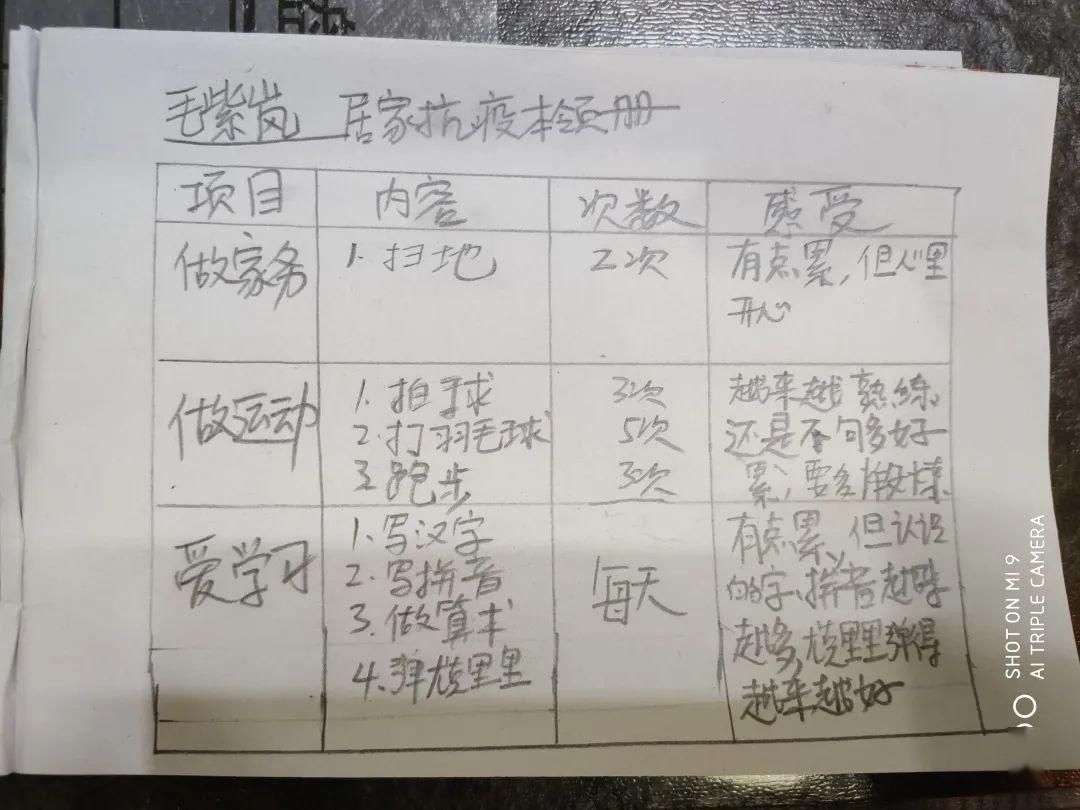 毛紫岚 居家抗疫本领册
项目 内容 次数 感受
做家务 1. 扫地 2次 有点累,但心里
开心
做运动 1. 拍球 3次 越来越熟练
2. 打羽毛球 5次 还是不够多好
3. 跑步 3次 累,要多锻炼
爱学习 1. 写汉字 每天 有点累,但认识
2. 写拼音 的字、拼音越来
3. 做算术 越多,尤克里里弹得
4. 弹尤克里里 越来越好
SHOT ON MI 9
AI TRIPLE CAMERA